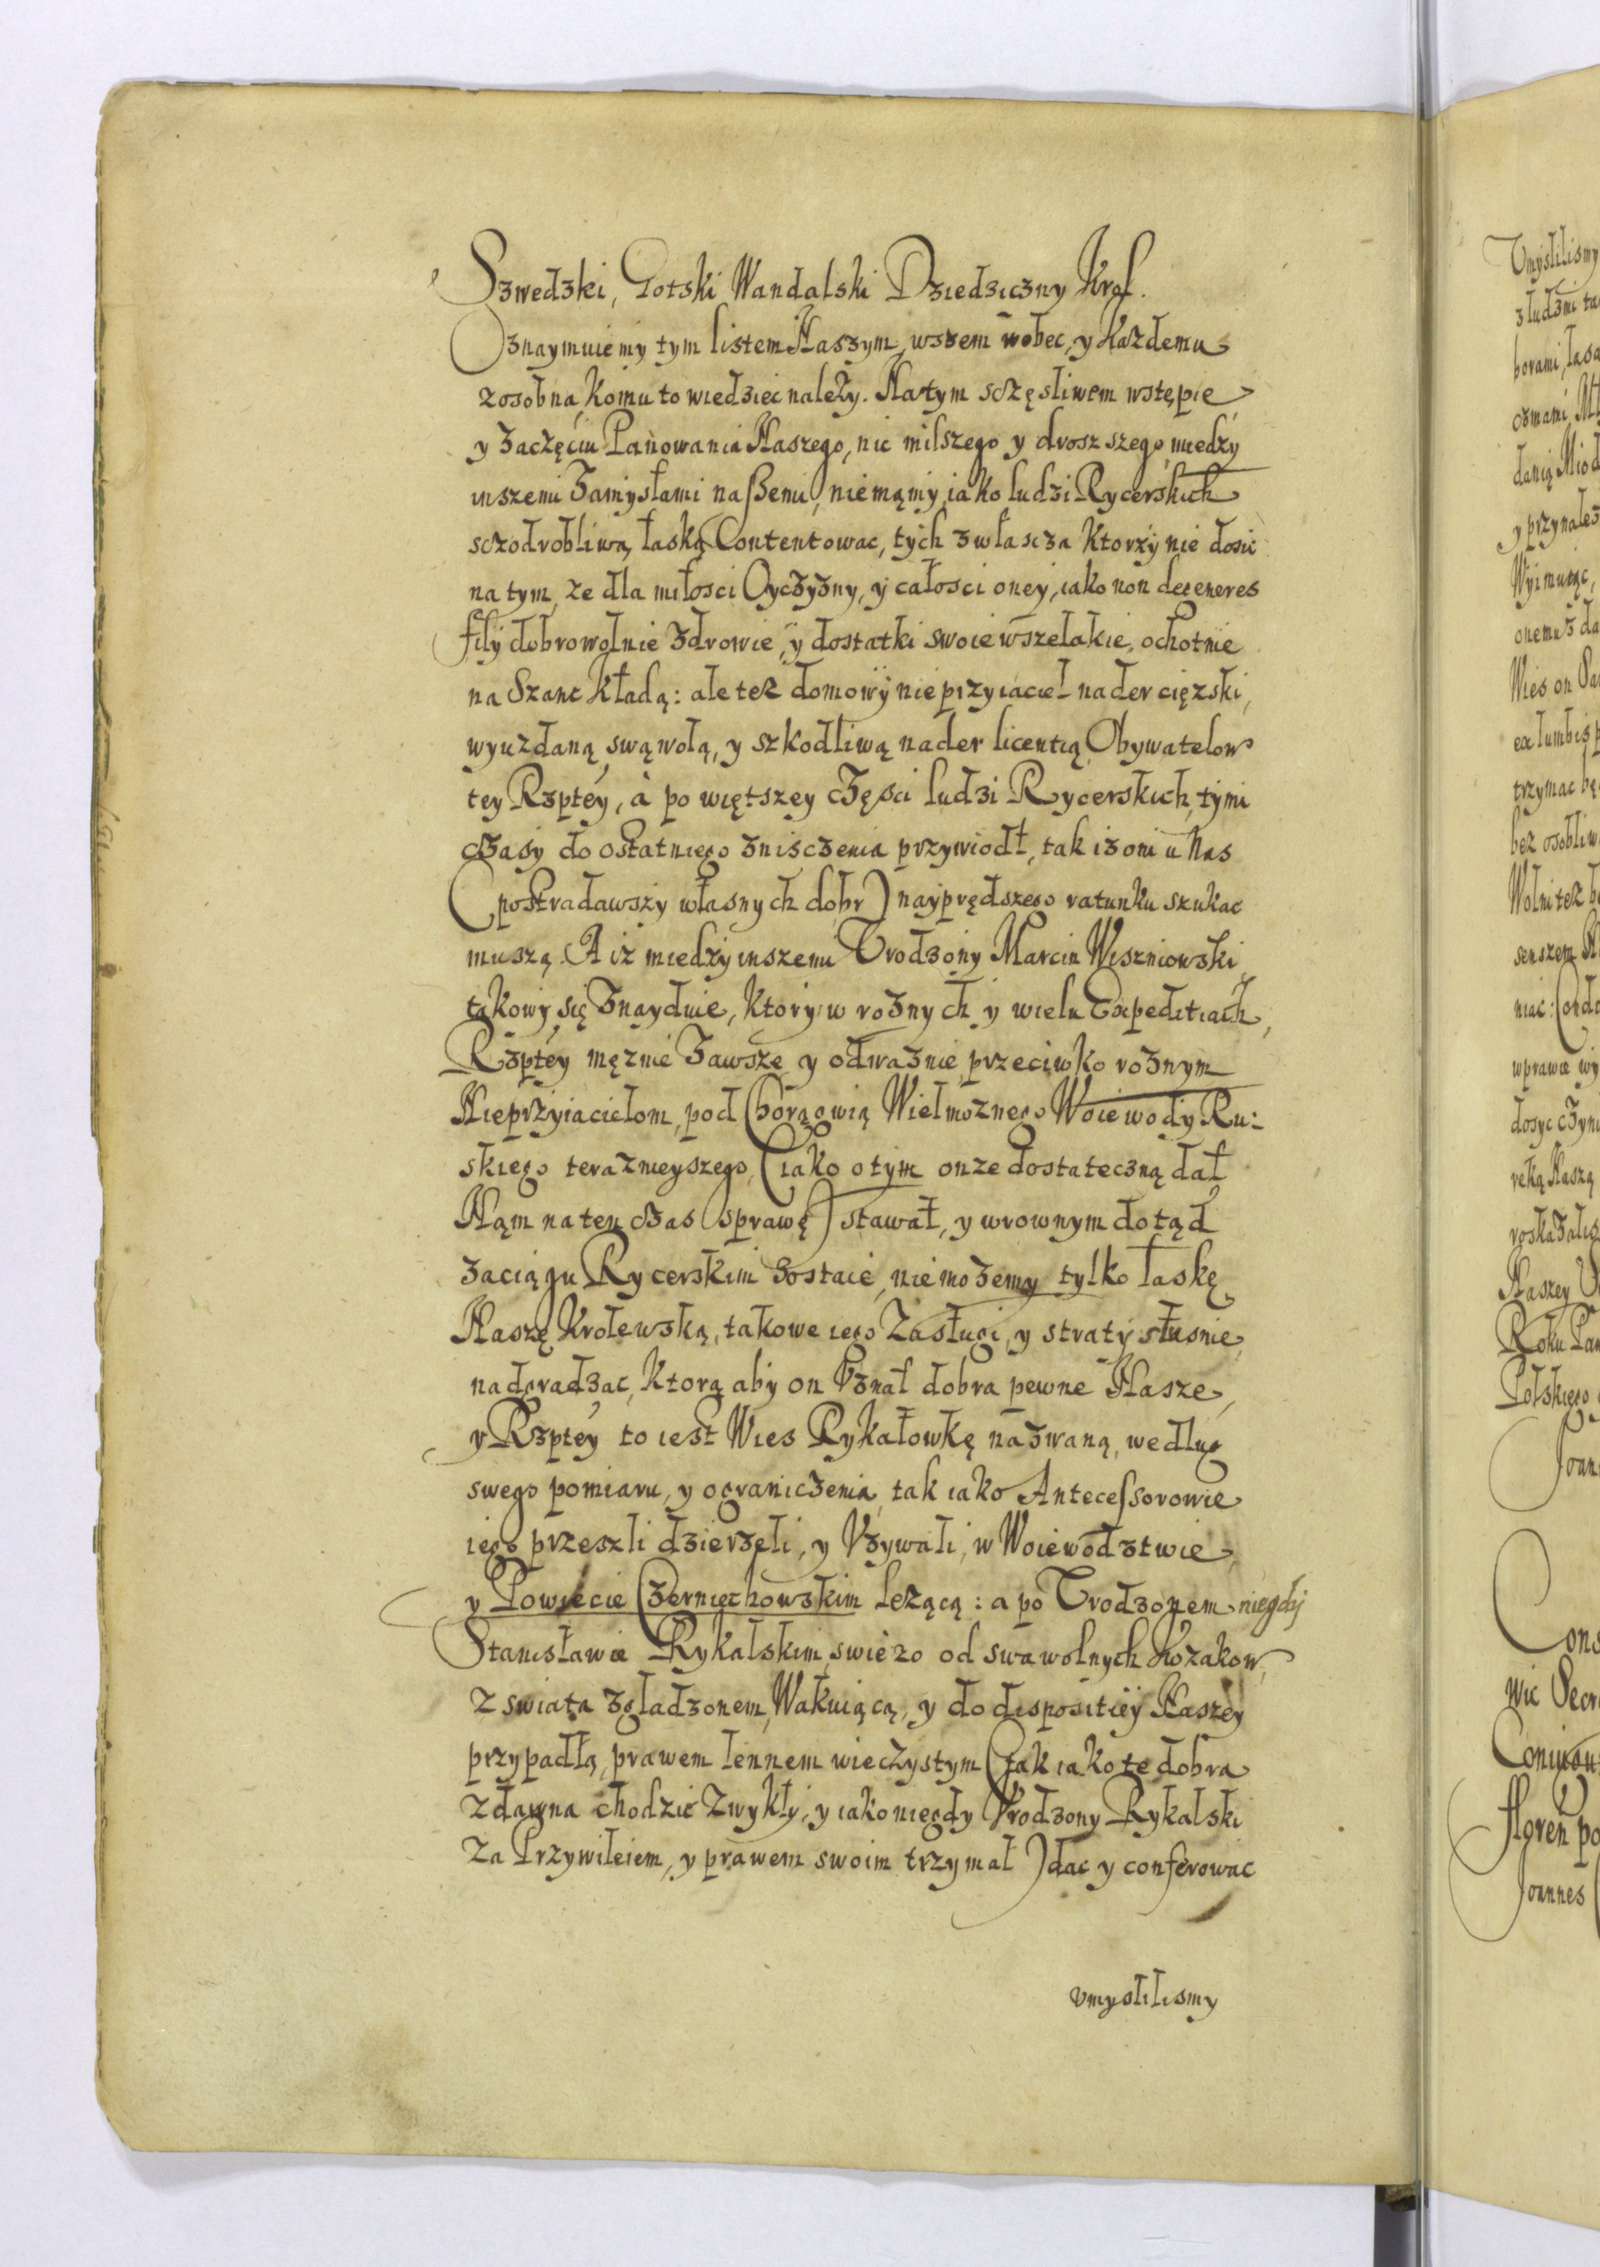 Szwedzki, Gotski Wandalski Dziedziczny Krol.
Oznaymuiemy tym listem Naszym, wszem wobec, y kazdemu
zosobna, komu to wiedziec nalezy. Na tym sczęsliwem wstępie
y zaczęciu Panowania Naszego, nic milszego y droszszego, miedzy
inszemi Zamysłami naszemi, niemamy, iako ludzi Rycerskich
sczodrobliwą łaską Contentowac, tych zwłascza ktorzy nie dosic
na tym, ze dla miłosci Oyczyzny, y całosci oney, iako non degeneres
filij dobrowolnie zdrowie, y dostatki swoie wszelakie, ochotnie
na Szanc kładą: ale tez domowy nieprzyiaciel nader cięzski,
wyuzdaną swąwolą, y szkodliwą nader licentią Obywatelow
tey Rzptey, à po więtszey części ludzi Rycerskich, tymi
czasy do ostatniego zniszczenia przywiodł, tak iz oni u Nas
(postradawszy własnych dobr) nayprędszego ratunku szukac
muszą. A iz miedzy inszemi Urodzony Marcin Wiszniowski
takowy się znayduie, ktory w roznych y wielu Expeditiach,
Rzptey męznie Zawsze y odwaznie przeciwko roznym
Nieprzyiaciełom, pod Chorągwią Wielmoznego Woiewody Ru-
skiego teraznieyszego, (iako o tym onze dostateczną dał
Nąm na ten czas sprawę) stawał, y w rownym dotąd
zaciągu Rycerskim zostaie, niemozemy tylko łaskę
Naszę Krolewską, takowe iego Zasługi, y straty słusnie
nadgradzac, ktorą aby on Uznał dobra pewne Nasze,
y Rzptey to iest Wies Rykałowkę nazwaną, według
swego pomiaru, y ograniczenia, tak iako Antecessorowie
iego przeszli dzierzeli, y Uzywali, w Woiewodztwie,
y Powiecie Czerniechowskim lezącą: a po Urodzonem niegdy
Stanisławie Rykalskim, swiezo od swawolnych Kozakow,
z swiata zgładzonem, Wakuiącą, y do dispositiey Naszey
przypadłą, prawem lennem wieczystym (tak iako te dobra
zdawna chodzic zwykły, y iako niegdy Urodzony Rykalski
za Przywileiem, y prawem swoim trzymał) dac y conferowac
umyslilismy
Umyslilismy
z ludzmi
borami, lasa
dosyc
Wolni tez
wprawie
Naszey
Roku Pan
Polskiego
Joannes